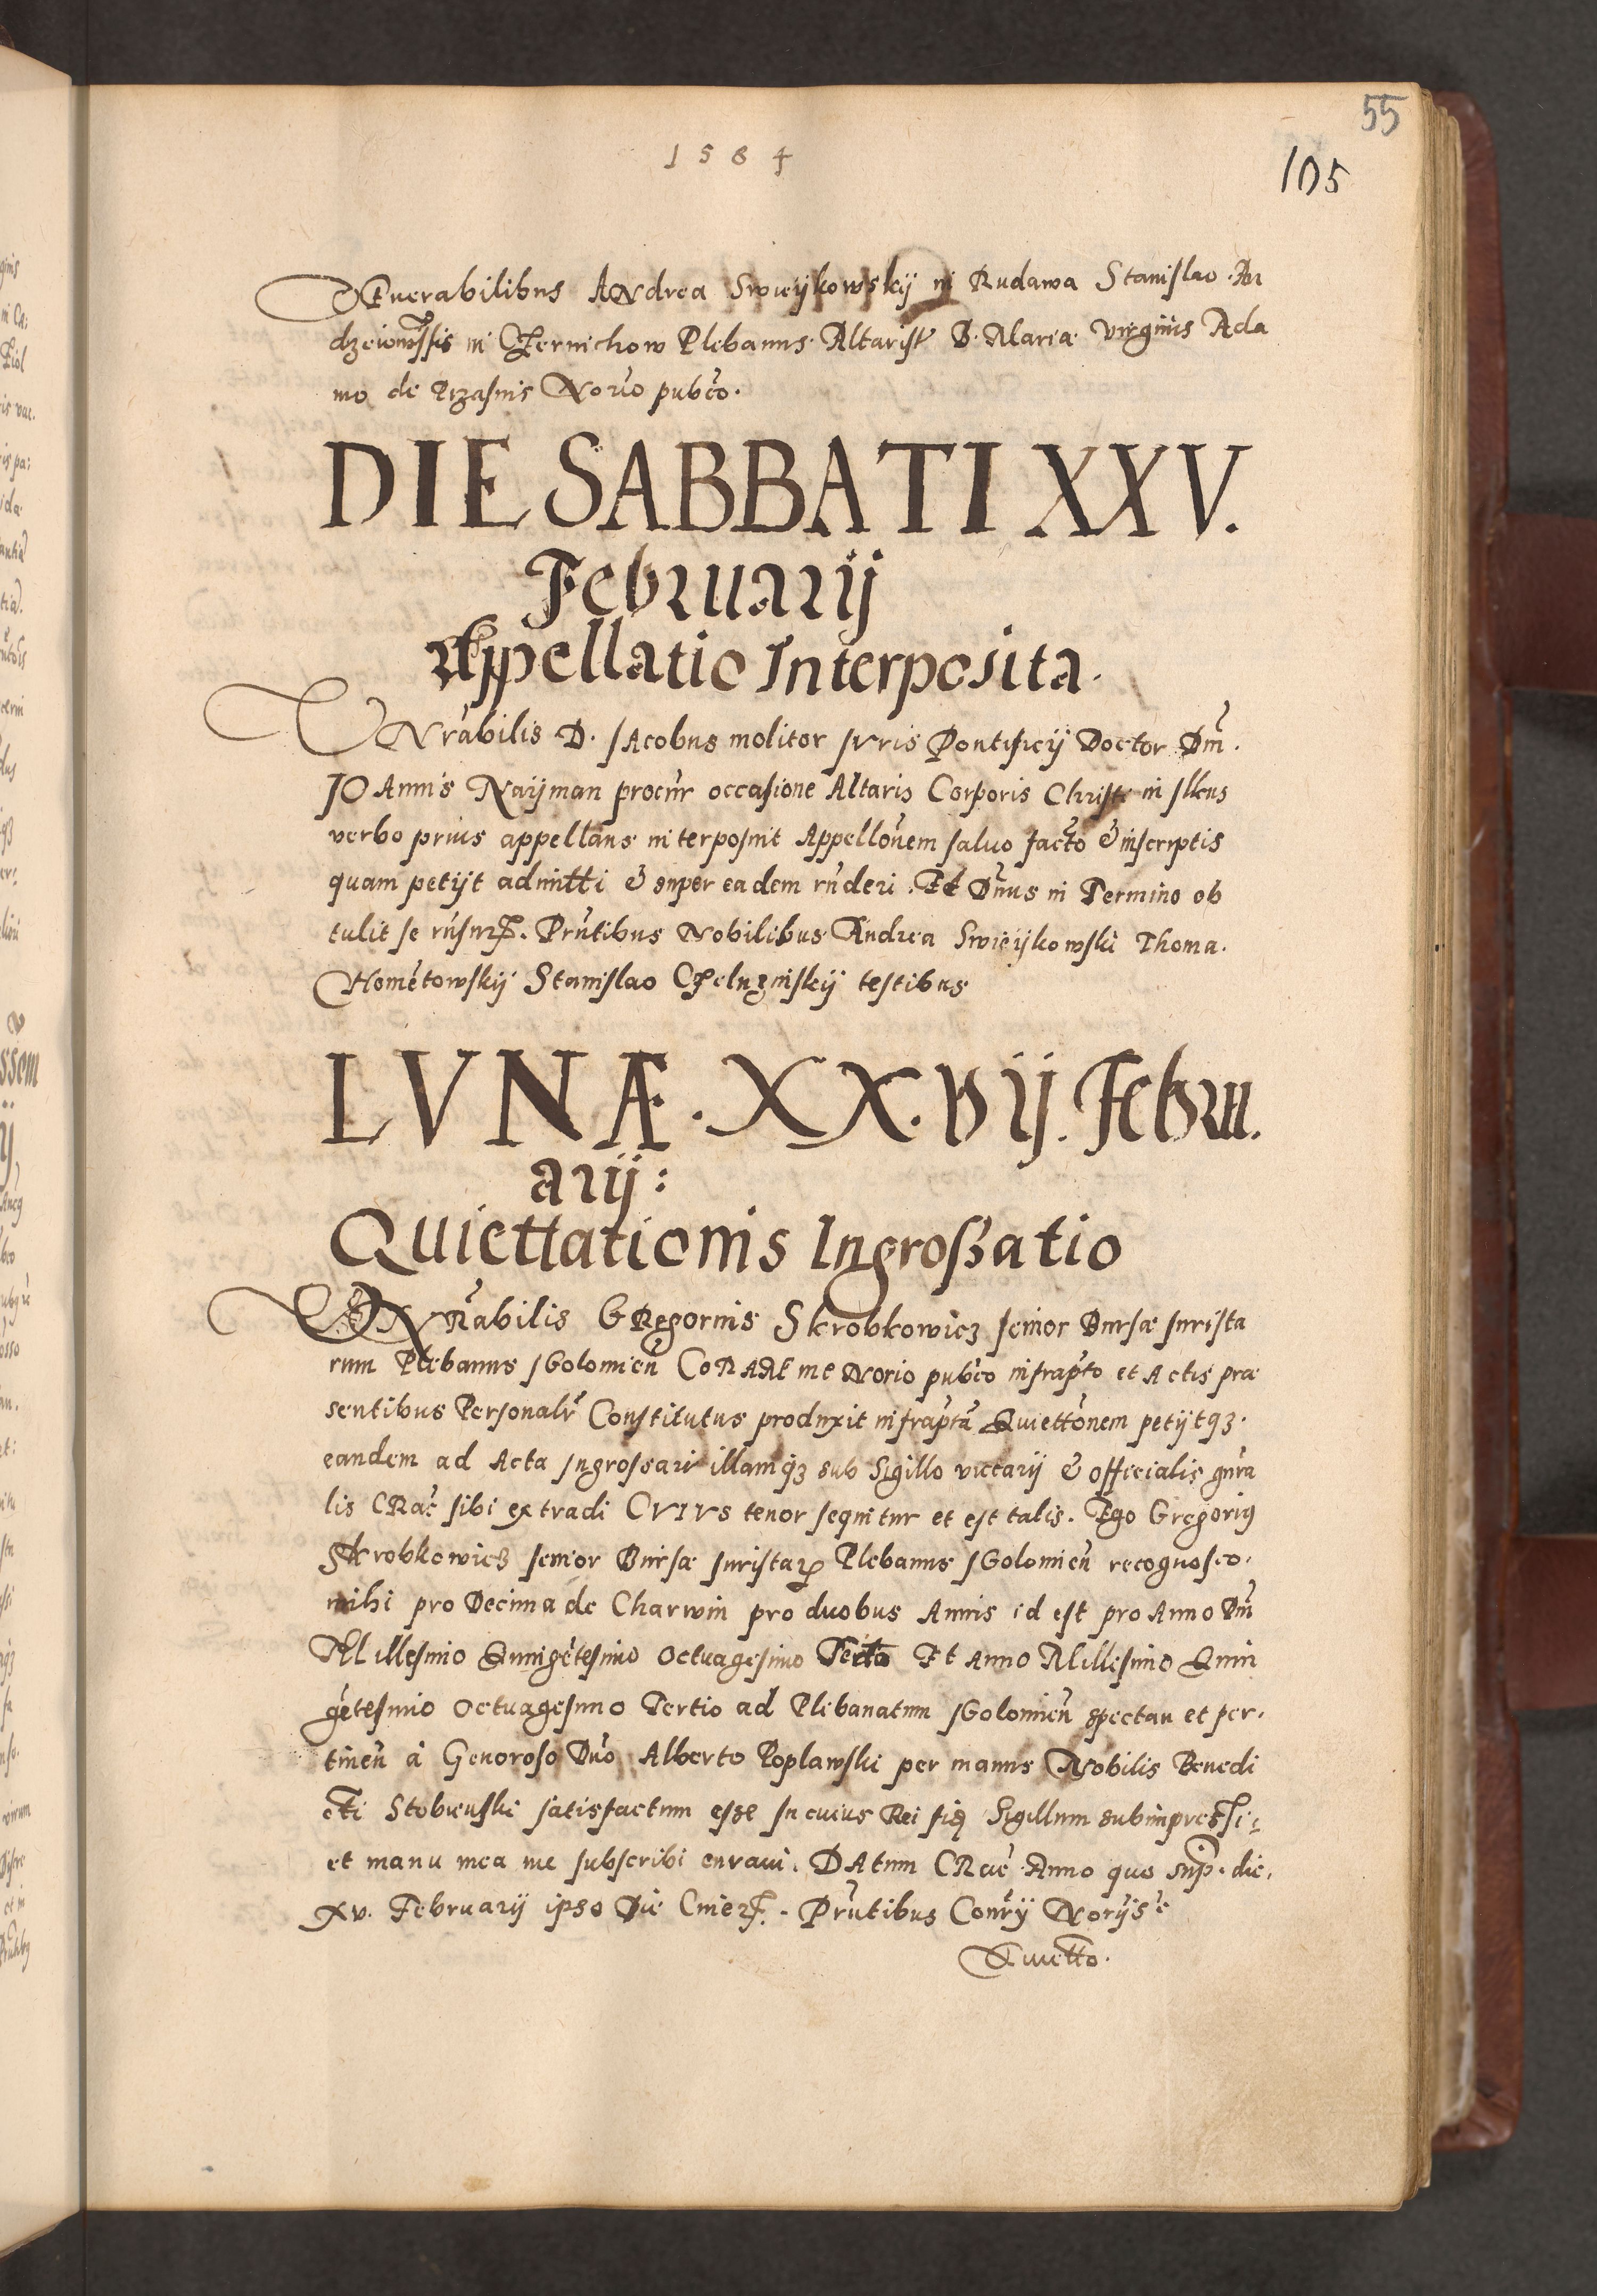 55
1584
105
VEnerabilibus ANdrea Swieijkowskij in Rudawa Stanislao
in Czernichow Plebanus Altarist B. Mariæ virginis Ada
mo de Norio pubco.
DIE SABBATI XXV.
Februarij
Appellatio Interposita.
VNrabilis D. IAcobus molitor Ivris Pontificij Doctor Dm̃.
IOAnnis Naijman procur occasione Altaris Corporis Christi in Ilkus
verbo prius appellans interposuit Appellonem saluo facto & inscriptis
quam petijt admitti & super eadem rnderi. Et Dnus in Termino ob
tulit se rnsur. Prntibus Nobilibus Andrea Swieijkowski Thoma.
Hometowskij Stanislao testibus
LVNÆ. XX. Vij. Febru.
arij:
Quiettationis Ingrossatio
VNRabilis GRegorius Skrobkowicz senior Bursæ Iurista
rum Plebanus IGolomien CoRAM me Norio pubco infrapto et Actis præ
sentibus Personalr Constitutus produxit infraptã Quiettonem petijtqz.
eandem ad Acta Ingrossari illamqz sub Sigillo vicarij & officialis gnra
lis CRac sibi extradi CVIVs tenor sequitur et est talis. Ego Gregorius
Skrobkowicz senior Bursæ Iuristarum Plebanus IGolomien recognosco.
mihi pro Decima de Charwin pro duobus Annis id est pro Anno Dni
Millesimo Quingetesimo Octuagesimo Et Anno Millesimo Quin
getesimo Octuagesimo Tertio ad Plebanatum IGolomien spectan et per.
tinen à Generoso Dno Alberto Poplawski per manus Nobilis Benedi
cti Stobienski satisfactum esse In cuius Rei fidẽ Sigillum subimpressi
et manu mea me subscribi curaui. DAtum CRacẽ Anno quo sup. die.
xv. Februarij ipso Die Cinerum. Prntibus Conry Norijs
Quietto.